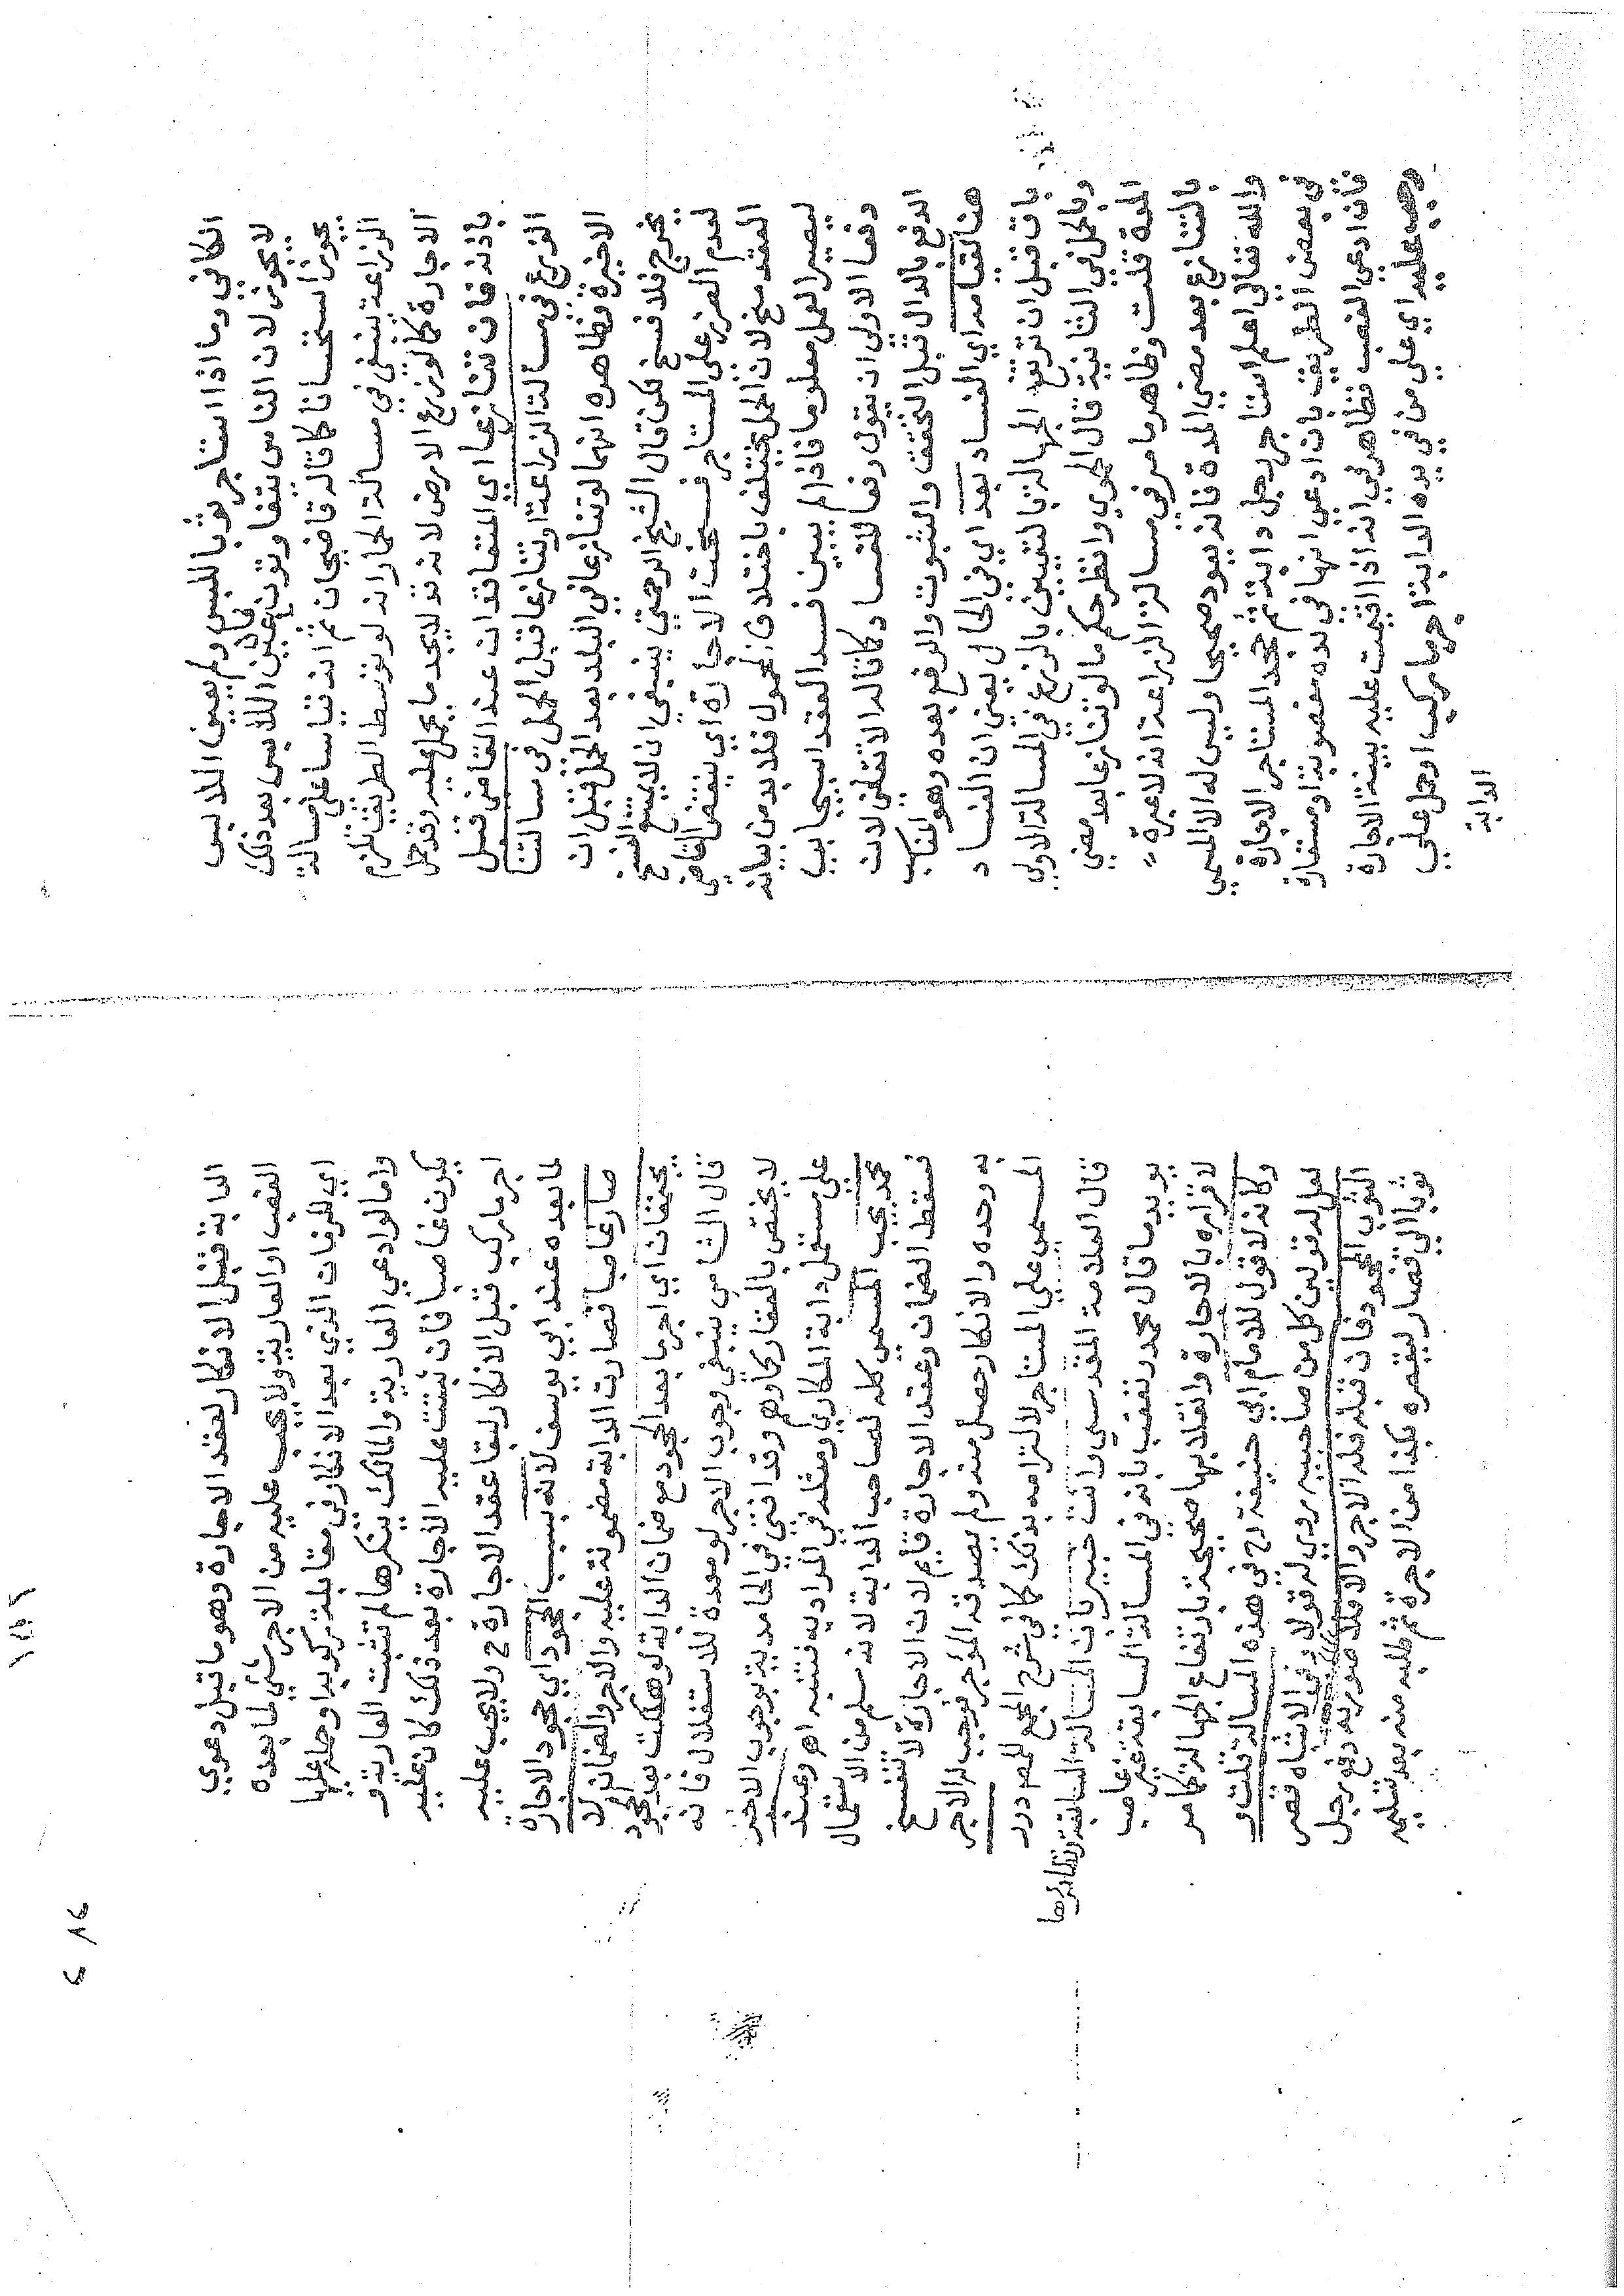 الكافي وما اذا استاجر ثوبا للبس ولم يعين اللابس
لا يجوز لان الناس يتفاوتون فان عين اللابس بعد ذلك
يجوز استحسانا كما قاله قاضيخان ثم انه قياسا على مسالة
الزراعة ينبغي في مسالة الحمار انه لو توسط الطريق تلزم
الاجارة كما لو زرع الارض لانه قد لا يجد ما يحمل عليه وقد حمل
باذنه فان تنازعا اي المتعاقدان عند القاضي قبل
الزرع في مسالة الزراعة او تنازعا قبل الحمل في مسالتنا
الاخيرة فظاهره انهما لو تنازعا في البلد بعد الحمل قبل ان
يخرج فلا فسخ لكن قال الشيخ الرحمتي ينبغي ان لا يمتنع الفسخ
لعدم الضرر على المستاجر فسخت الاجارة اي ينقض القاضي
العقد منح لان الحمل يختلف باختلاف المحمول فلا بد من بيانه
ليصير العمل معلوما فاذا لم يبين فسد العقد اسبيجابي
دفعا الاولى ان يقول رفعا للفساد كما قاله الاتقاني لان
الدفع بالدال قبل التحقق والثبوت والرفع بعده وهو المناسب
هنا لقيامه اي الفساد بعد اي في الحال يعني ان الفساد
باق قبل ان ترتفع الجهالة بالتعيين بالزرع في المسالة الاولى
وبالحمل في الثانية قال الحموي وانظر حكم ما لو تنازعا بعد مضي
المدة قلت وظاهر ما مر في مسالة الزراعة انه لا عبرة
بالتنازع بعد مضي المدة فانه يعود صحيحا وليس له الا المسمى
والله تعالى اعلم استاجر رجل دابة ثم جحد المستاجر الاجارة
في بعض الطريق بان ادعى انها في يده مغصوبة او مستعارة
فان ادعى الغصب فظاهر في انه اذا اقيمت عليه بينة الاجارة
وجب عليه اي على من في يده الدابة اجر ما ركب او حمل على
الدابة
الدابة قبل الانكار لعقد الاجارة وهو ما قبل دعوى
الغصب او العارية ولا يجب عليه من الاجر شيء لما بعده
اي للزمان الذي بعد الانكار في مقابلة ركوبه او حمله عليها
واما لو ادعى العارية والمالك ينكرها لم تثبت العارية و
يكون غاصبا فان ثبتت عليه الاجارة بعد ذلك كان عليه
اجر ما ركب قبل الانكار لبقا عقد الاجارة ح ولا يجب عليه
لما بعده عند ابي يوسف لانه بسبب الجحود اي جحود الاجارة
صار غاصبا فصارت الدابة مضمونة عليه والاجر والضمان لا
يجتمعان اي اجر ما بعد الجحود مع ضمان الدابة لو هلكت بعد الجحود
قال الشامي ينبغي وجوب الاجر لو معدة للاستغلال فانه
لا يختص بالعقار كما وهم وقد افتى في الحامدية بوجوب الاجر
على مستعمل دابة المكاري ومثله في المرادية فتنبه اهـ وعند
محمد يجب المسمى كله لصاحب الدابة لانه سلم من الاستعمال
فسقط الضمان وعقد الاجارة قايم لان الاجارة لا تنفسخ
به وحده والانكار حصل منه ولم يصدقه المؤجر فوجب له الاجر
المسمى على المستاجر لالتزامه بذلك كما في شرح المجمع للمص درر
قال العلامة المقدسي وانت خبير بان المسالة السابقة ونظائرها
يويد ما قال محمد وتعقب بانه في المسالة السابقة غير غاصب
لاقراره بالاجارة وانقلابها صحيحة بارتفاع الجهالة كما مر
وكانه لا قول للامام ابي حنيفة رح في هذه المسالة قلت و
لعل له قولين كل من صاحبيه روى له قولا وفي الاشباه قصر
الثوب المجحود فان قبله فله الاجر والا فلا صورته دفع رجل
ثوبا الى قصار ليقصره بكذا من الاجرة ثم طلبه منه بعد تسليمه